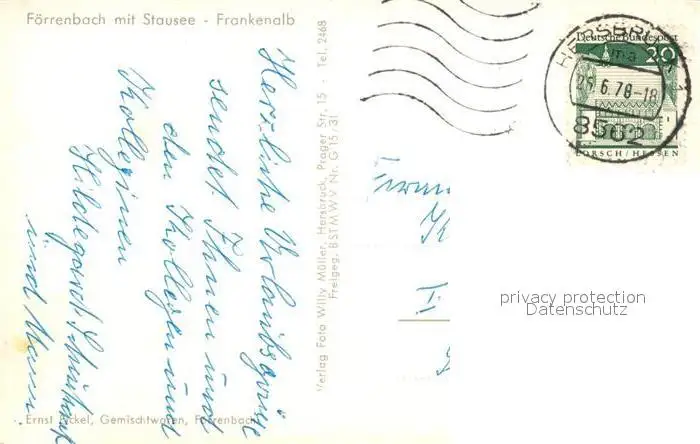 Förrenbach mit Stausee - Frankenalb
Herzliche Urlaubsgrüße
sendet Ihnen und
den Kollegen und
Kolleginen
Hildegard
und Mann
Verlag Foto Willy Müller, Hersbruck, Prager Str. 15 - Tel. 2468
Freigeg. BSTMWV Nr. G 15/31
Deutsche Bundespost
20
LORSCH/HESSEN
HERSBRUCK 1
6.70-18
8562
Firm
privacy protection
Datenschutz
Ernst Pickel, Gemischtwaren, Förrenbach